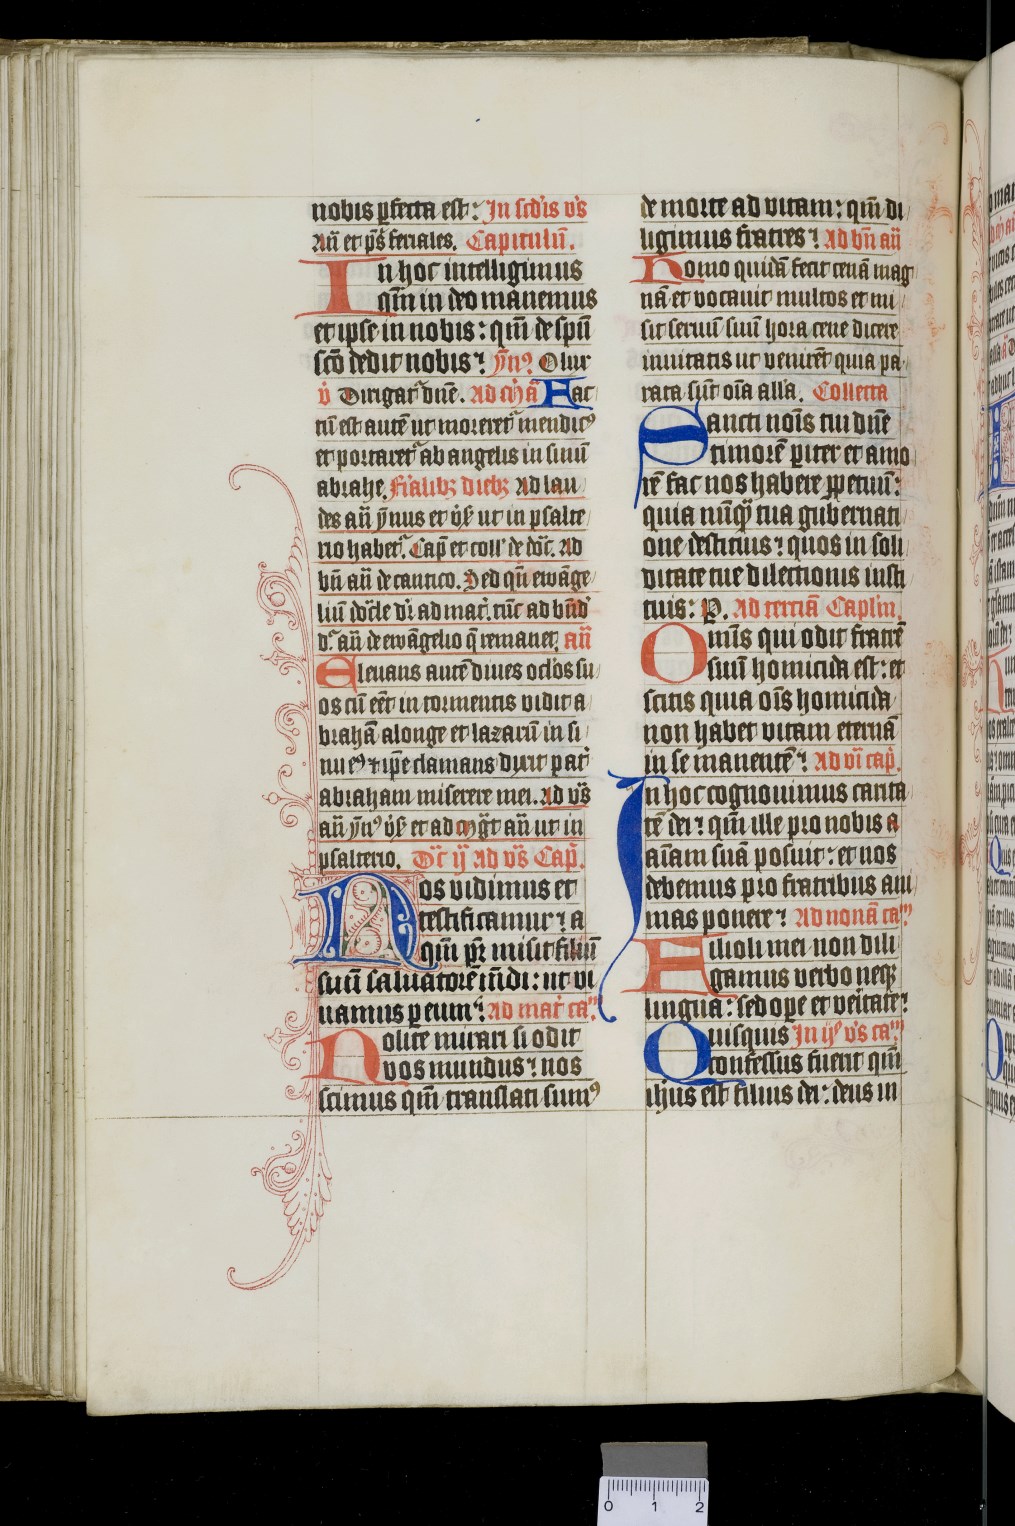 nobis ꝑfecta est: In scd̾is vꝰs
An̄ et p̄s feriales. Capitulū.
In hoc intelligimus
qm̄ in deo manemus
et ipse in nobis: qm̄ de spū
sc̄o dedit nobis: ỹnꝰ O lux
v̾ Dirigat᷑ dn̄e. Ad m̃ a᷑ Fac
tū est autē ut moreret᷑ mendicꝰ
et portaret᷑ ab angelis in sinū
abrahe. F̾ialibꝫ diebꝫ ad lau
des an̄ ỹnus et v̾s̾ ut in psalte
rio habet᷑. Cap̄ et coll̾ de dōc̾. Ad
bn̄ an̄ de cantico. Sed qn̄ ewāge
liū dōc̾le d̾r ad mat̾. tūc ad bn̄d̾
d̾r an̄ de ewāgelio q̄ remanet. an̄
Eleuans autē diues oc̾los su
os cū eēt in tormentis vidit a
brahā alonge et lazarū in si
nu eiꝰ ⁊ ip̄e clamans dixit pat̾
abraham miserere mei. Ad vꝰs
an̄ ỹnꝰ v̾s̾ et ad mg̾t an̄ ut in
psalterio. D̾c ij Ad vꝰs Cap̄.
Nos vidimus et
testificamur: a
qm̄ pr̄ misit filiū
suū saluatorē mūdi: ut vi
uamus ꝑ eum: Ad mat̾ ca.m
Nolite mirari si odit
vos mundus: nos
scimus qm̄ translati sumꝰ
de morte ad vitam: qm̄ di
ligimus fratres: Ad bn̄ an̄
Homo quidā fecit cenā mag
nā et vocauit multos et mi
sit seruū suū hora cene dicere
inuitatis ut venirēt quia pa
rata sūt oīa alla̾. Collecta
Sancti noīs tui dn̄e
timorē ꝑiter et amo
rē fac nos habere ꝑpetuū:
quia nūqꝫ̄ tua gubernati
one destituis: quos in soli
ditate tue dilectionis insti
tuis: P. Ad terciā Cap̾lm.
Omīs qui odit fratrē
suū homicida est: et
scitis quia oīs homicida
non habet vitam eternā
in se manentē: Ad vi cap̾.
In hoc cognouimus carita
tē dei: qm̄ ille pro nobis a
aīam suā posuit: et nos
debemus pro fratribus ani
mas ponere: Ad nonā ca.m
Filioli mei non dili
gamus verbo neqꝫ
lingua: sed oꝑe et veĩtate:
Quisquis In ijꝰ vꝰs ca.m
confessus fuerit qm̄
ih̄us est filius dei: deus in